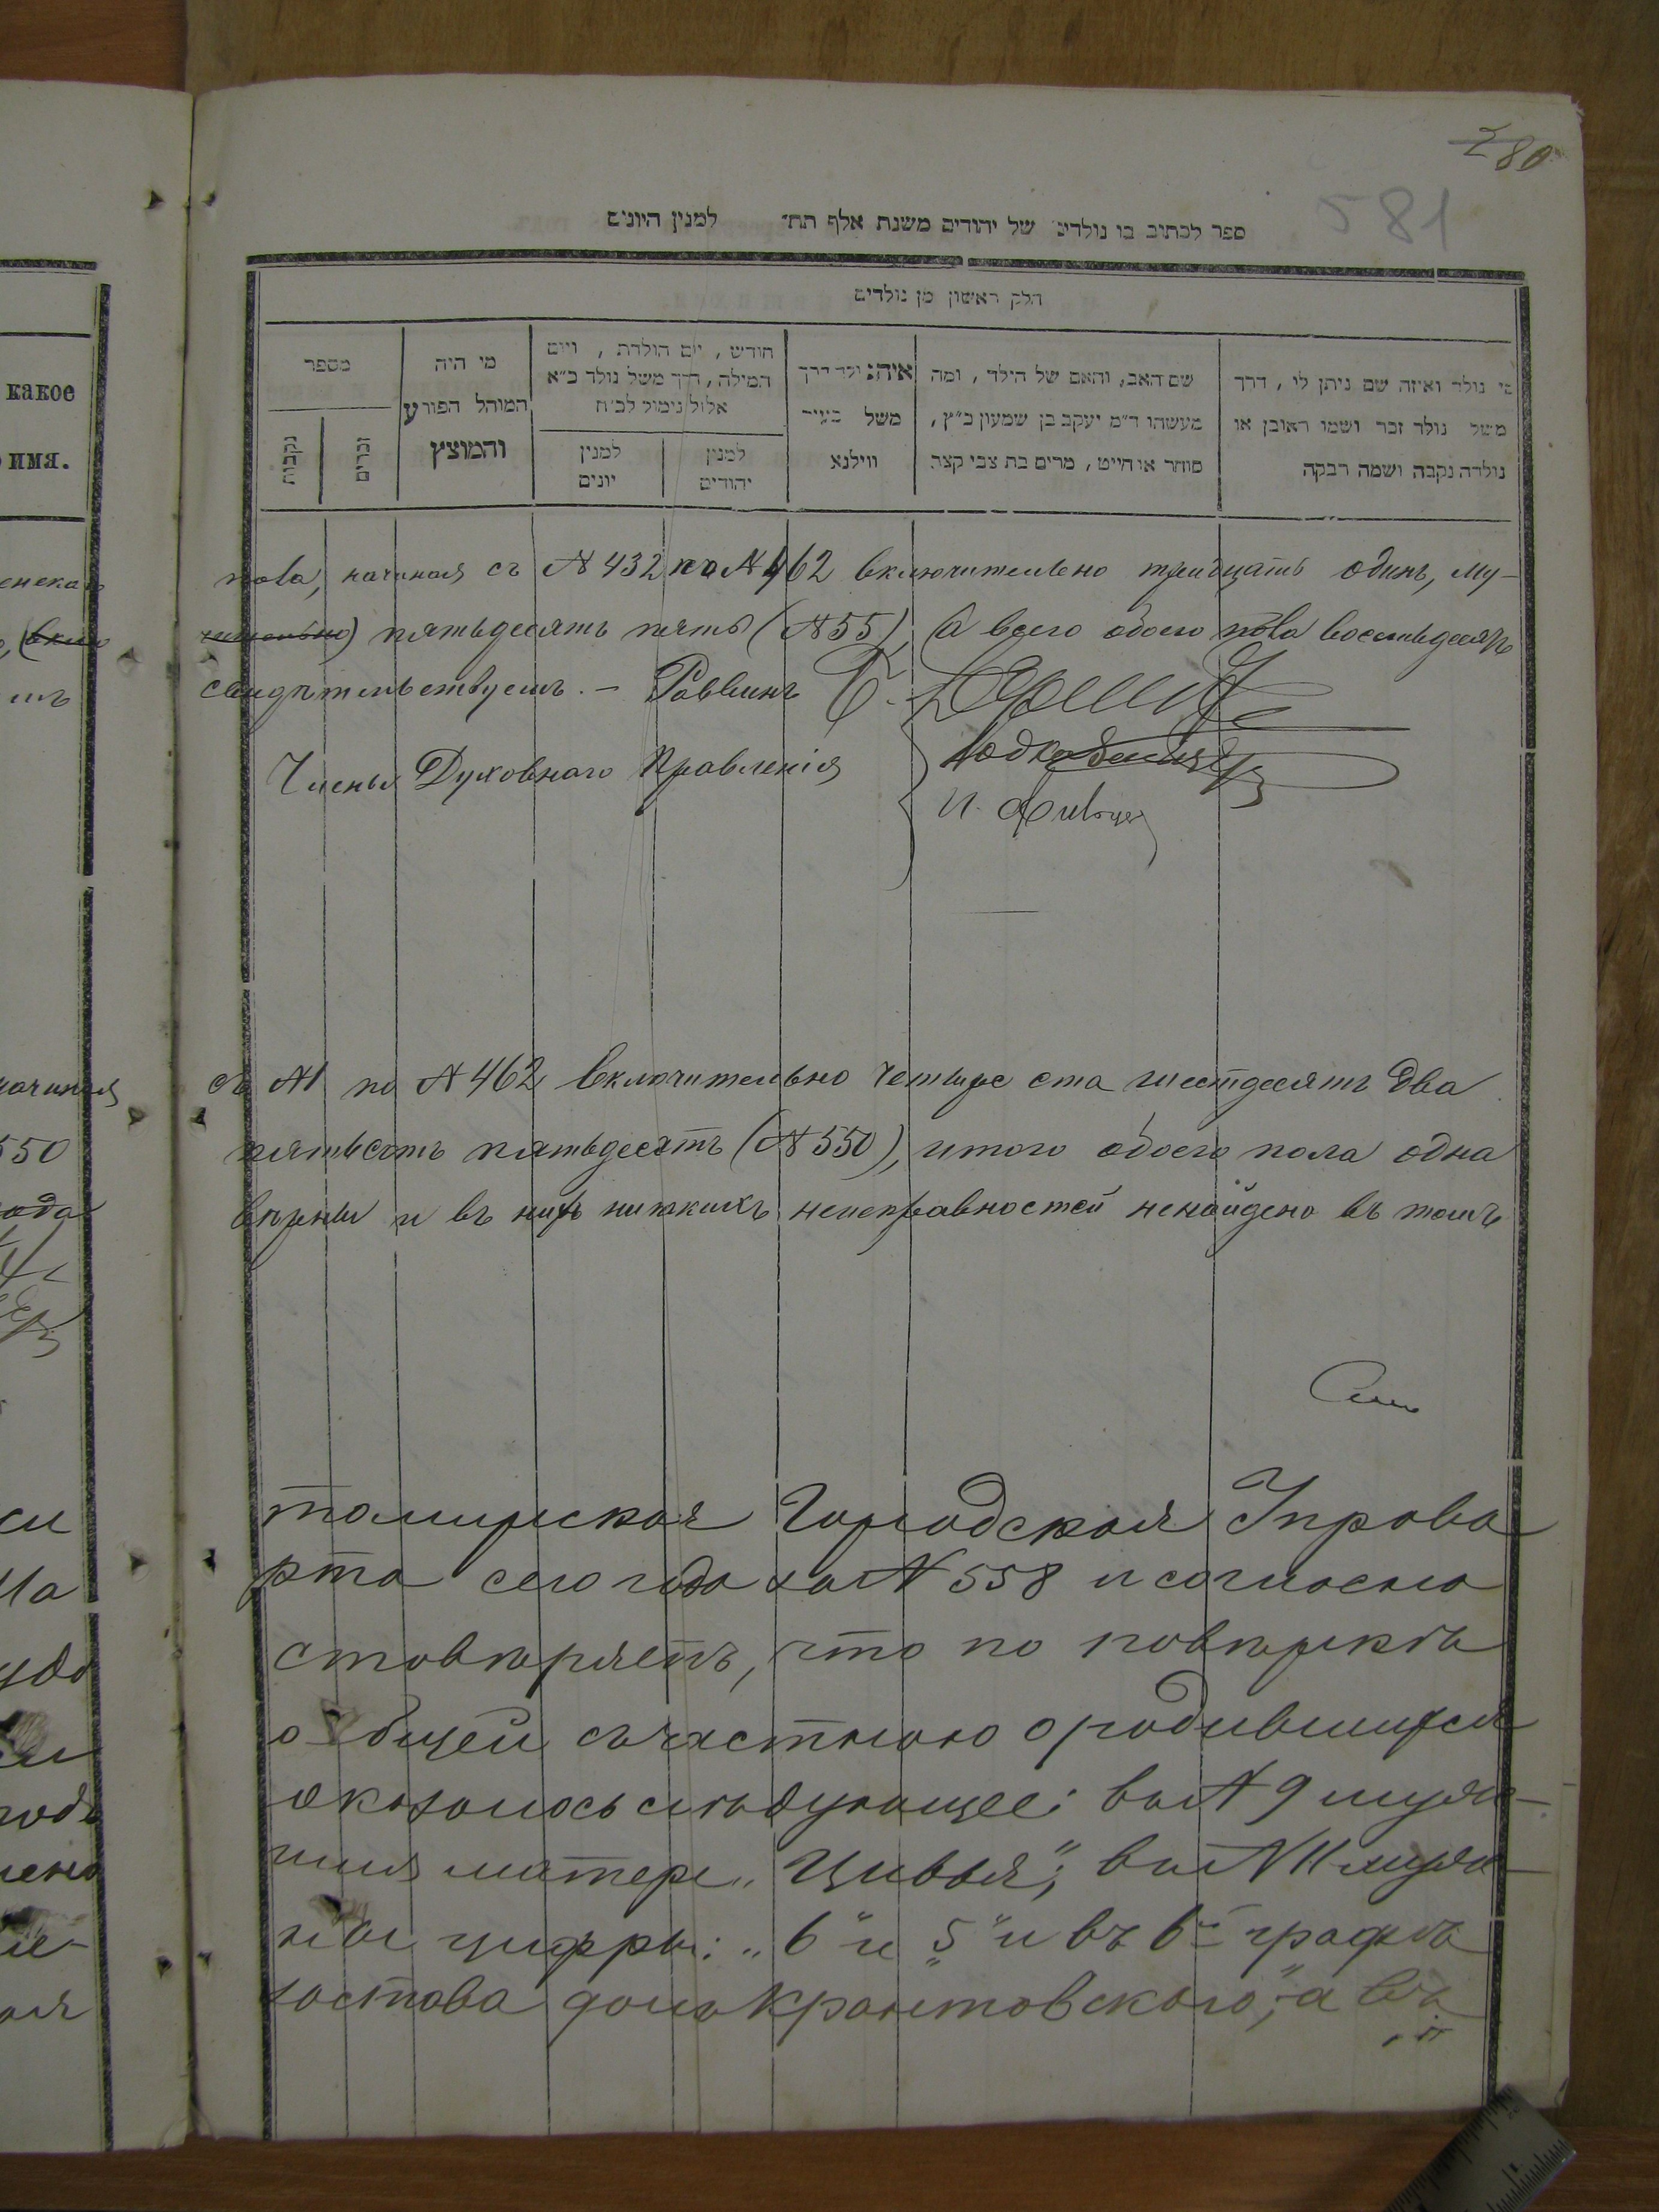 280
581
ספר לכתוב בו נולדים של יהודים משנת אלף תת״ למנין היונים
חלק ראשון מן נולדים
מי נולד ואיזה שם ניתן לו, דרך
משל נולד זכר ושמו ראובן או
נולדה נקבה ושמה רבקה
שם האב, והאם של הילד, ומה
מעשהו ד״מ יעקב בן שמעון כ״ץ,
סוחר או חייט, מרים בת צבי קצב
איה נולד דרך
משל בעיר
ווילנא
חודש, יום הולדת, ויום
המילה, דרך משל נולד כ״א
אלול נימול לכ״ח
למנין
יהודים
למנין
יונים
מי היה
המוהל הפורע
והמוצץ
מספר
זכרים
נקבות
какое
имя.
пола, начиная съ № 432 по № 462 включительно тридцать одинъ, му-
пятьдесятъ пять (№ 55), а всего обоего пола восемьдесятъ
свидѣтельствуемъ. – Раввинъ
Члены Духовнаго Правленія
съ №1 по № 462 включительно четыре ста шестдесятъ два
пятьсотъ пятьдесятъ (№ 550), итого обоего пола одна
вѣрны и въ нихъ никакихъ неисправностей ненайдено въ томъ
начиная
550
томирская Городская Управа
рта сего года за № 558 и согласно
стовѣряетъ, что по повѣркѣ
общей съ частною о родившихся
оказалось слѣдующее: въ № 9 муж-
имя матери „Цивья"; въ № 11 муж-
ны цифры: „6" и „5" и въ 6й графѣ
состава дома Крантовскаго", а въ